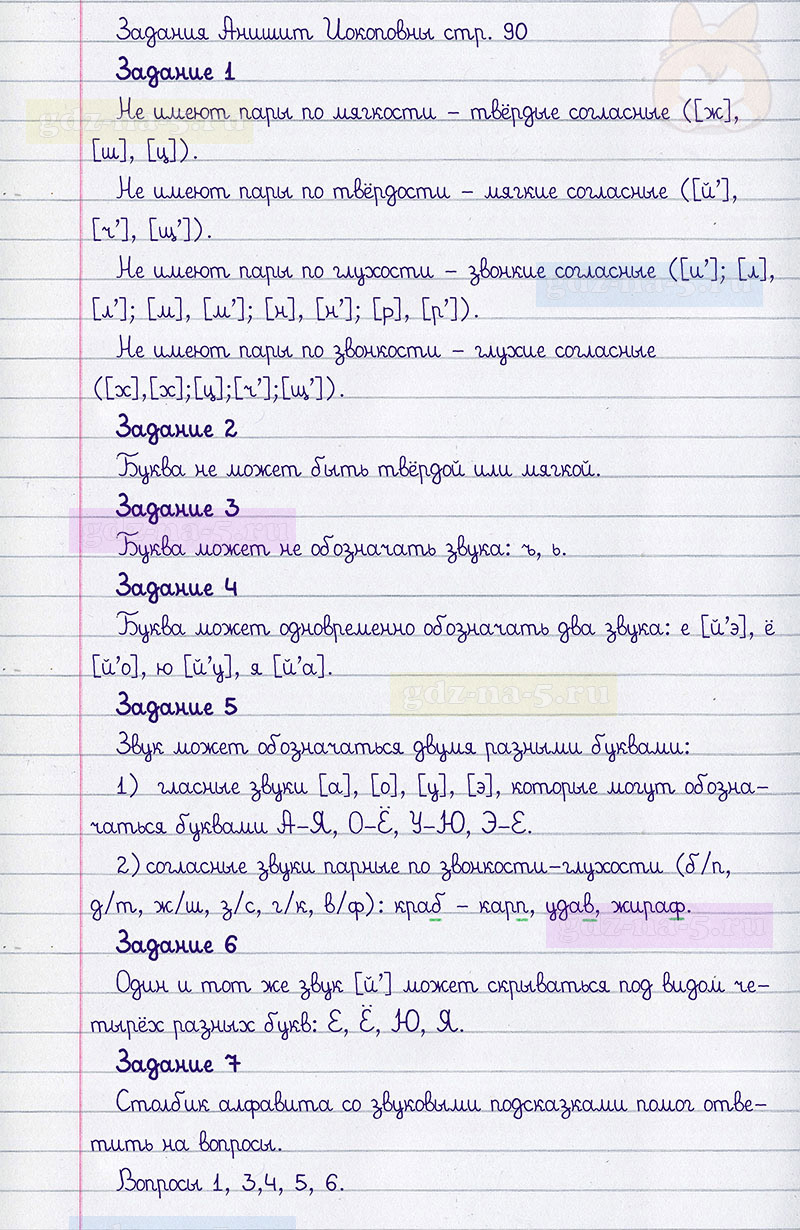 Задания Анишит Йокоповны стр. 90
Задание 1
Не имеют пары по мягкости – твёрдые согласные ([ж],
[ш], [ц]).
Не имеют пары по твёрдости – мягкие согласные ([й’],
[ч’], [щ’]).
Не имеют пары по глухости – звонкие согласные ([и’]; [л],
[л’]; [м], [м’]; [н], [н’]; [р], [р’]).
Не имеют пары по звонкости – глухие согласные
([х],[х];[ц];[ч’];[щ’]).
Задание 2
Буква не может быть твёрдой или мягкой.
Задание 3
Буква может не обозначать звука: ъ, ь.
Задание 4
Буква может одновременно обозначать два звука: е [й’э], ё
[й’о], ю [й’у], я [й’а].
Задание 5
Звук может обозначаться двумя разными буквами:
1) гласные звуки [а], [о], [у], [э], которые могут обозна-
чаться буквами А–Я, О–Ё, У–Ю, Э–Е.
2) согласные звуки парные по звонкости–глухости (б/п,
д/т, ж/ш, з/с, г/к, в/ф): краб – карп, удав, жираф.
Задание 6
Один и тот же звук [й’] может скрываться под видом че-
тырёх разных букв: Е, Ё, Ю, Я.
Задание 7
Столбик алфавита со звуковыми подсказками помог отве-
тить на вопросы.
Вопросы 1, 3,4, 5, 6.
gdz-na-5.ru
gdz-na-5.ru
gdz-na-5.ru
gdz-na-5.ru
gdz-na-5.ru